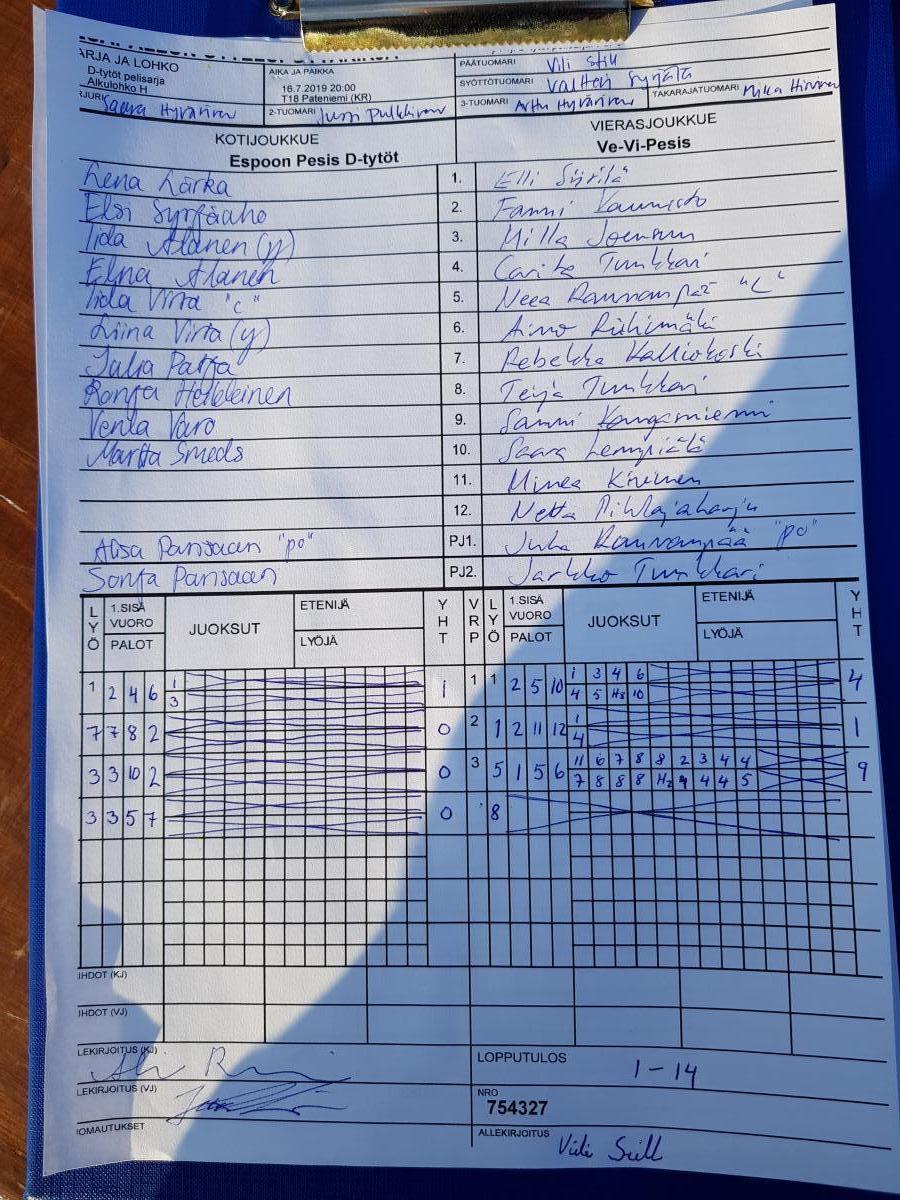 ARJA JA LOHKO
D-tytöt pelisarja
Alkulohko H
AIKA JA PAIKKA
16.7.2019 20:00
T18 Pateniemi (KR)
PÄÄTUOMARI Vili Still
SYÖTTÖTUOMARI Valtteri
JURI Saara Hyvärinen
2-TUOMARI Jussi Pulkkinen
3-TUOMARI Arttu Hyvärinen
TAKARAJATUOMARI Mika Hirvonen
KOTIJOUKKUE
Espoon Pesis D-tytöt
VIERASJOUKKUE
Ve-Vi-Pesis
Lena Lärka 1. Elli
Elsi Syrjäaho 2. Fanni Kaunisto
Iida Alanen (y) 3. Milla Joensuu
Elna Alanen 4. Carita Tunkkari
Iida Virta "c" 5. Neea Rannanpää "C"
Liina Virta (y) 6. Aino Riihimäki
Julia Patja 7. Rebekka Kalliokoski
Ronja Heikkeinen 8. Teija Tunkkari
Venla Varo 9. Sanni Kangasniemi
Martta Smeds 10. Saara Lempiälä
11. Minea Kivinen
12. Netta Pihlajaharju
Alisa Pansaan "po" PJ1. Juha Rannanpää "po"
Sonja Pansaan PJ2. Jarkko Tunkkari
LYÖ 1.SISÄ VUORO PALOT JUOKSUT ETENIJÄ LYÖJÄ YHT VRP LYÖ 1.SISÄ VUORO PALOT JUOKSUT ETENIJÄ LYÖJÄ YHT
1 2 4 6 1 1 1 1 2 5 10 1 3 4 6 4
3 4 5 H8 10
7 7 8 2 0 2 1 2 11 12 1 1
4
3 3 10 2 0 3 5 1 5 6 11 6 7 8 8 2 3 4 4 9
7 8 8 8 H2 4 4 4 5
3 3 5 7 0 8
IHDOT (KJ)
IHDOT (VJ)
LEKIRJOITUS (KJ)
LOPPUTULOS 1-14
LEKIRJOITUS (VJ)
NRO
754327
OMAUTUKSET
ALLEKIRJOITUS Vili Still